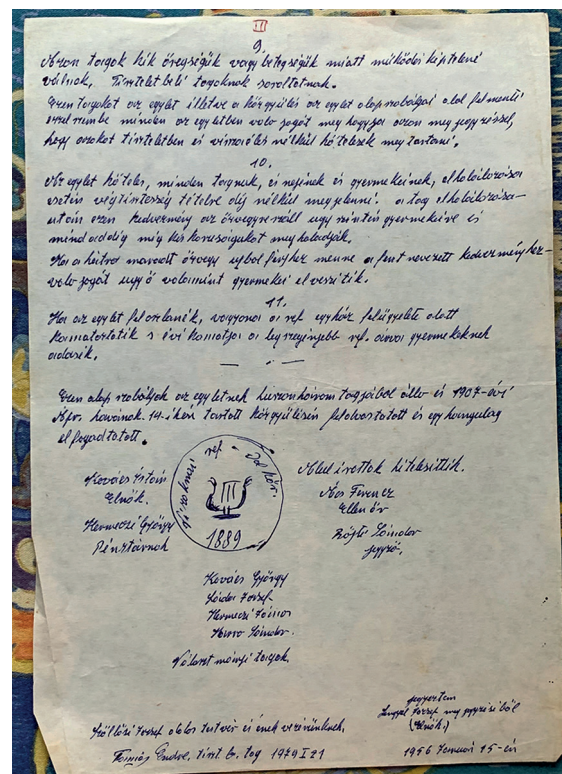 III
9.
Azon tagok kik öregségük vagy betegségük miatt működni képtelené
válnak, Tiszteletbeli tagoknak soroltatnak.
Ezen tagokat az egylet illetve a közgyülés az egylet alapszabályai alol felmenti
ezzel szembe minden az egyletben valo jogát meg hagyja azon meg jegyzéssel,
hogy azokat tiszteletben és viszonzás nélkül kötelesek meg tartani.
10.
Az egylet köteles, minden tagnak, és nejének és gyermekeinek, elhalálozása
esetén végtisztesség tételre díj nélkül meg jelenni. a tag elhalálozása-
után ezen kedvezmény az özvegyre száll ugy szintén gyermekeire is
mind addig míg kis koruságukat meg haladják.
Ha a hátra maradott özvegy ujbol férjhez menne a fent nevezett kedvezményhez-
valo jogát ugy ő valamint gyermekei elveszítik.
11.
Ha az egylet feloszlanék, vagyona a ref egyház felügyelete alatt
kamatoztatik s évi kamatjai a legszegényebb ref. árva gyermekeknek
adásék.
Ezen alap szabályok az egyletnek huszonhárom tagjából álló és 1907-évi
Ápr. havának. 14-ikén tartott közgyülésén felolvastatott és egyhangulag
elfogadtatott.
Kovács István
Elnök.
Hermeczi György
Pénztárnok
ref. Dal kör.
1889
Alul írottak hitelesítték.
Ács Ferencz
Ellenőr
Sándor
jegyző,
Kovács György
József
Hermeczi János
Sándor.
Választmányi tagok.
jegyeztem
József meg jegyzéséből
(Elnök)
Szöllősi József dalos testvér és ének vezérünknek,
Tamás Endre, tiszt. b. tag 1979 I 21
1956 Január 15-én